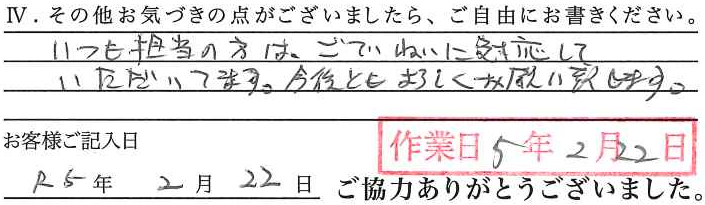 Ⅳ．その他お気づきの点がございましたら、ご自由にお書きください。
いつも担当の方は、ごていねいに対応して
いただいてます。今後ともよろしくお願い致します。
お客様ご記入日
作業日 5年 2月22日
R5年 2月 22日 ご協力ありがとうございました。